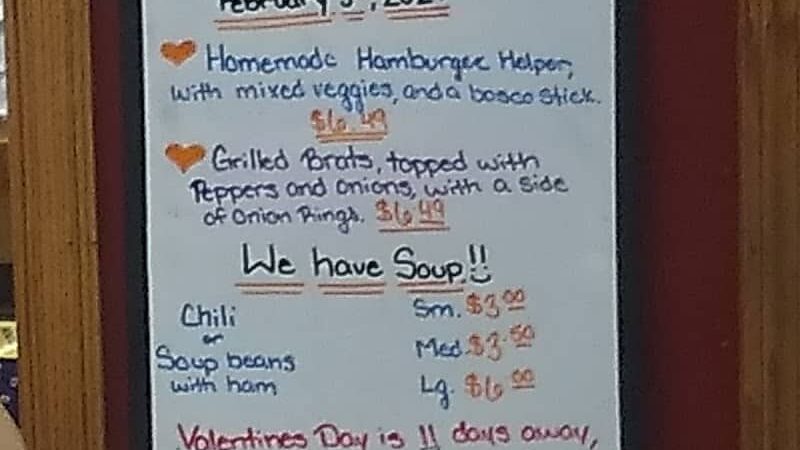 February 3,
Homemade Hamburger Helper,
with mixed veggies, and a bosco stick.
$6.49
Grilled Brats, topped with
Peppers and onions, with a side
of Onion Rings. $6.49
We have Soup!!
Chili Sm. $3.00
or
Soup beans Med. $3.50
with ham Lg. $6.00
Valentines Day is 11 days away,